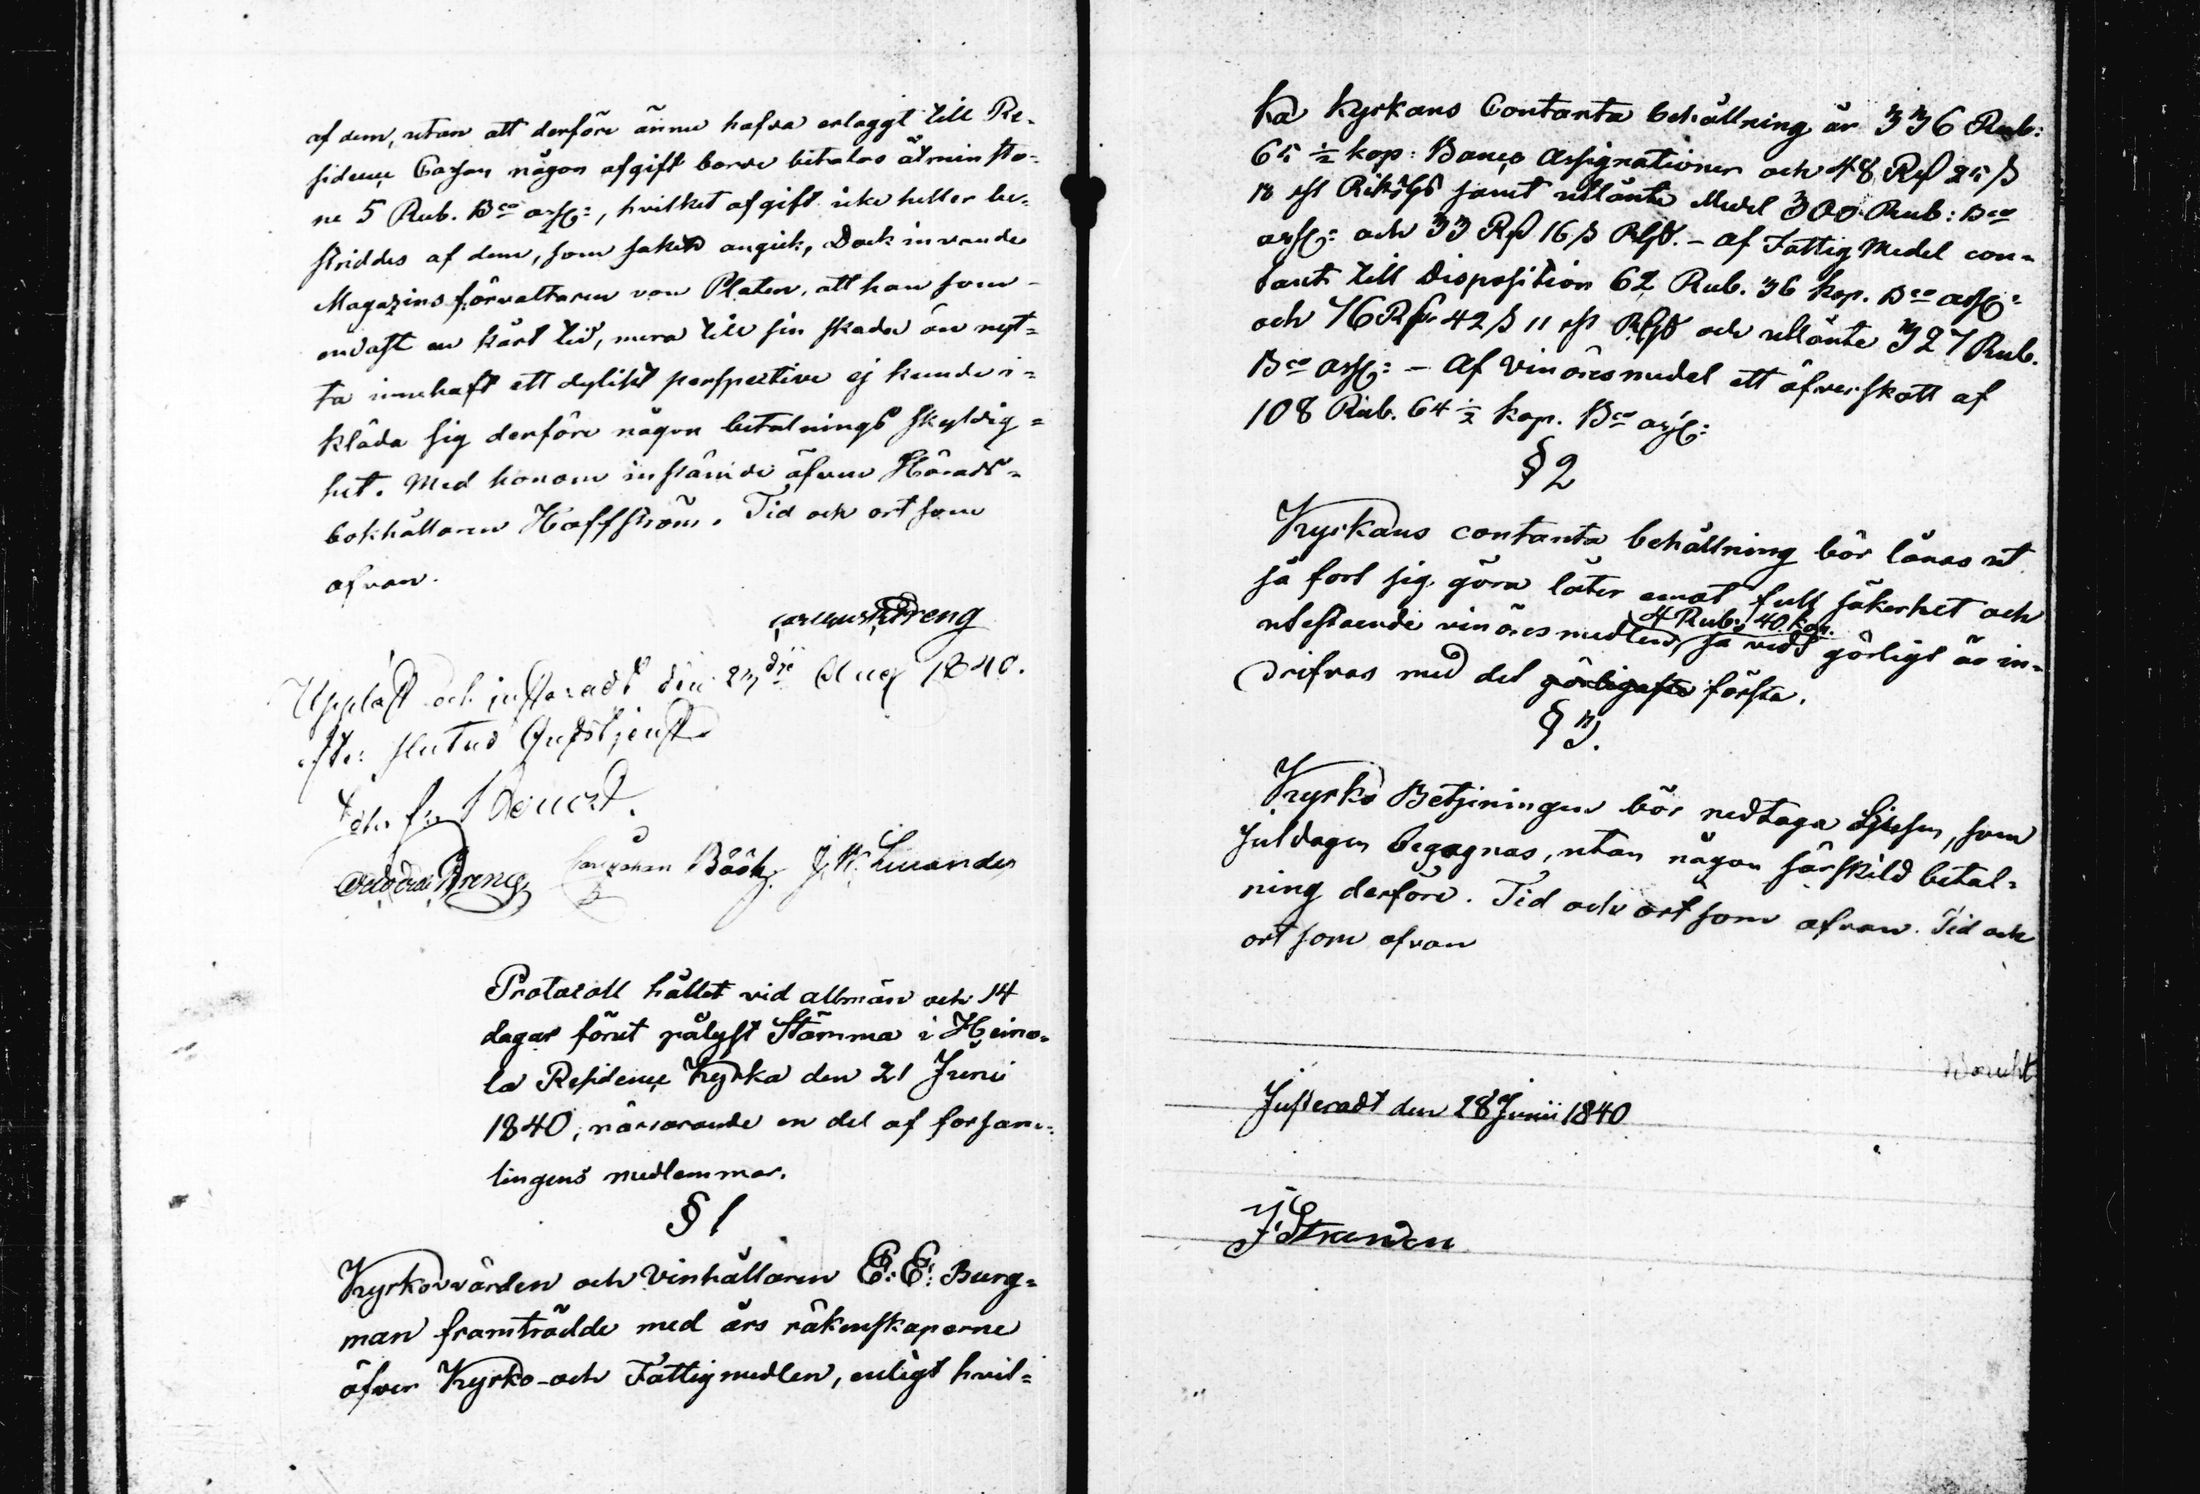 af dem, utan att derföre ännu hafva erlaggt till Re-
sidence Cassan någon afgift borde betalas åtminsto-
ne 5 Rub. Bco ass:, hvilket afgift icke heller be-
striddes af dem, som saken angick, Dock invände
Magazins förvaltaren von Platen, att han som
endast en kort tid, mera till sin skada än nyt-
ta innehaft ett dylikt perspective ej kunde i-
kläda sig derföre någon betalnings skyldig-
het. Med honom instämde äfven Härads-
bokhållaren Hoffström. Tid och ort som
ofvan.
Streng
Uppläst och justeradt den 23die Aug 1840.
efter slutad Gudstjenst
Streng Böök J. W. Lilvander
Protocoll hållet vid allmän och 14
dagar förut pålyst Stämma i Heino-
la Residence Kyrka den 21 Junii
1840, närvarande en del af forsam-
lingens medlemmar.
§ 1
Kyrkovärden och Vinhållaren E: E: Burg-
man framträdde med års räkenskaperne
öfver Kyrko- och Fattigmedlen, enligt hvil-
ka Kyrkans Contanta behållning är 336 Rub:
65 ½ kop: Banco Assignationer och 48 Rd 25 s
8 rst Riksgs samt utlånte Medel 300 Rub: Bco
ass: och 33 Rd 16 s Rgs. - af Fattig Medel con-
tant till Disposition 62 Rub. 36 kop. Bco ass:
och 76 Rd 42 s 11 rst Rgs och utlånte 327 Rub.
Bco ass: - Af Vinöresmedel ett öfverskott af
108 Rub. 64 ½ kop. Bco ass:
§ 2
Kyrkans contanta behållning bör lånas ut
så fort sig göra låter emot full säkerhet och
utestående vinöresmedlen, 4 Rub: 40 kop. så vidt görligt är in-
drifvas med det görligaste första.
§ 3.
Kyrko Betjeningen bör nedtaga Ljusen, som
Juldagen begagnas, utan någon särskild betal-
ning derföre. Tid och ort som ofvan. Tid och
ort som ofvan
Justeradt den 28 Junii 1840
J. Stranden